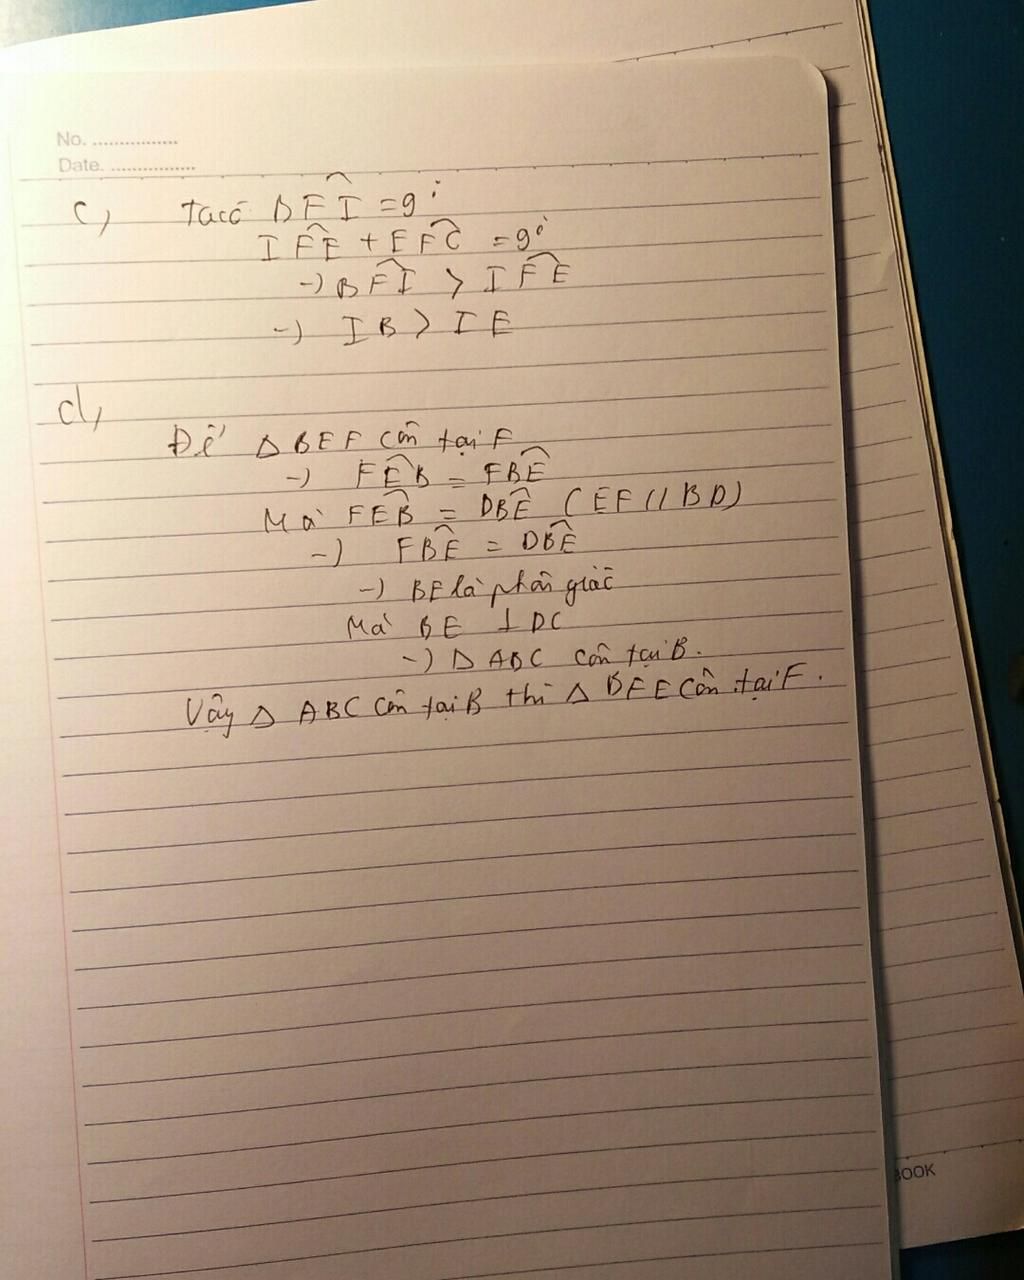 No. ................
Date. ................
c, Ta có BFI = 90°
IFE + EFC = 90°
-) BFI > IFE
-) IB > IE
d,
Để Δ BEF cân tại F
-) FEB = FBE
Mà FEB = DBE (EF // BD)
-) FBE = DBE
-) BE là phân giác
Mà BE ⊥ DC
-) Δ ABC cân tại B.
Vậy Δ ABC cân tại B thì Δ BFE cân tại F.
BOOK